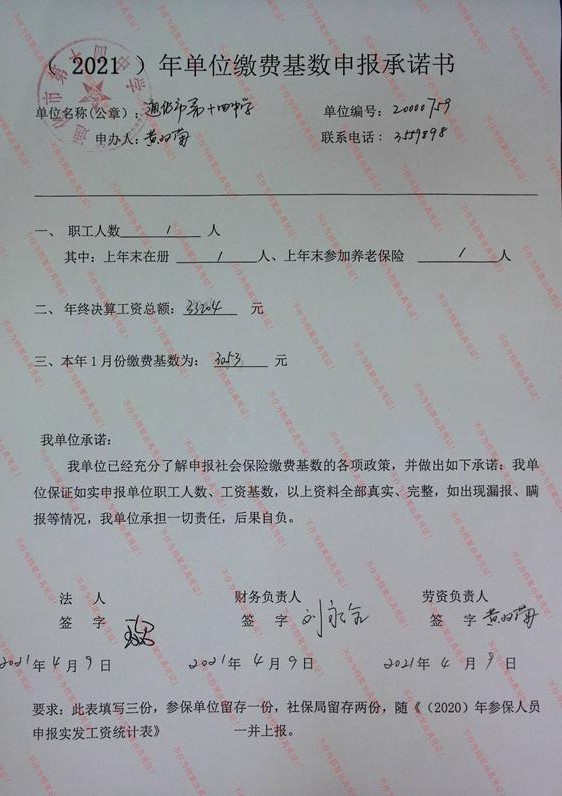 （ 2021 ）年单位缴费基数申报承诺书
单位名称(公章)：通化市第十四中学 单位编号：20000759
申办人：黄 联系电话：3559898
一、 职工人数 1 人
其中：上年末在册 1 人、上年末参加养老保险 1 人
二、年终决算工资总额：33204 元
三、本年1月份缴费基数为：3053 元
我单位承诺：
我单位已经充分了解申报社会保险缴费基数的各项政策，并做出如下承诺：我单
位保证如实申报单位职工人数、工资基数，以上资料全部真实、完整，如出现漏报、瞒
报等情况，我单位承担一切责任，后果自负。
法 人 财务负责人 劳资负责人
签 字 签 字 刘 签 字 黄
2021年4月9日 2021年4月9日 2021年4月9日
要求：此表填写三份，参保单位留存一份，社保局留存两份，随《（2020）年参保人员
申报实发工资统计表》 一并上报。